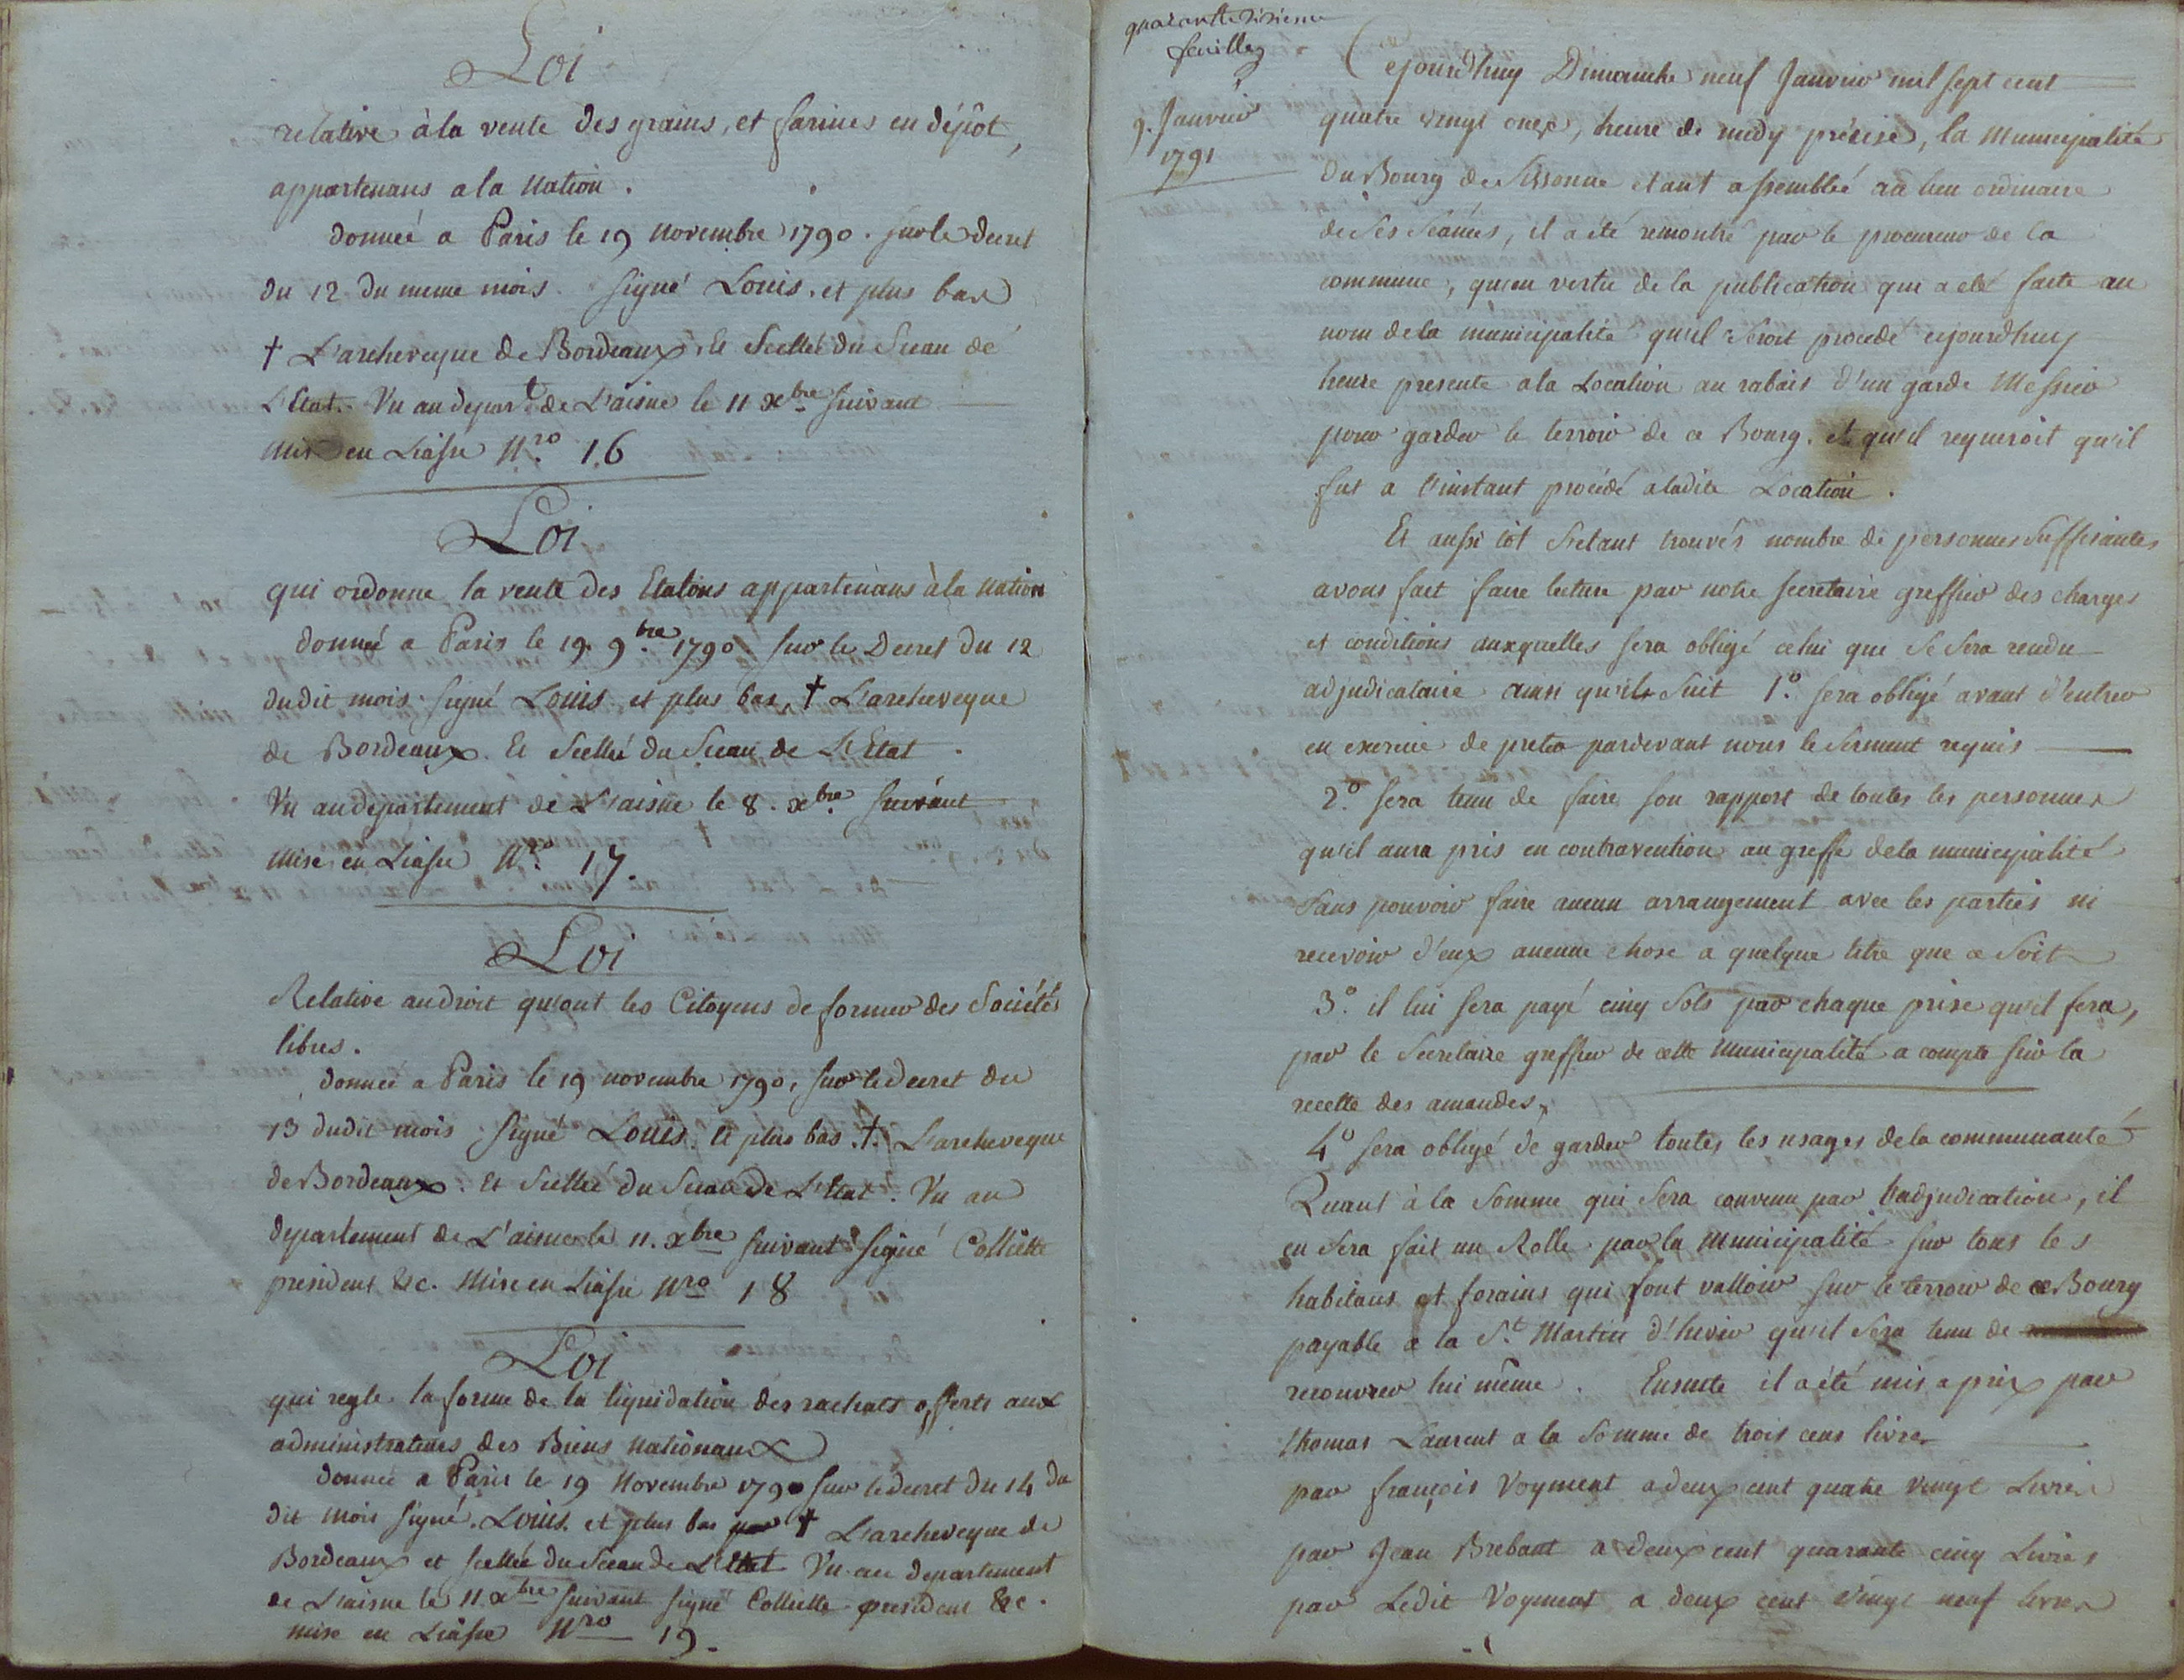 Loi
relative à la vente des grains, et farines en dépôt,
appartenans a la Nation.
donneé a Paris le 19 Novembre 1790. sur le decret
du 12 du meme mois. signé Louis. et plus bas
† L'archeveque de Bordeaux. Et Scelleé du Sceau de
L'Etat. Vu au depart.t de L'aisne le 11 xbre suivant
Mis en Liasse Nro. 16
Loi
qui ordonne la vente des Etalons appartenans à la Nation
donneé a Paris le 19. 9.bre 1790 sur le Decret du 12
dudit mois. signé Louis et plus bas, † L'archeveque
de Bordeaux. Et Scelleé du Sceau de L'Etat.
Vu au departement de L'aisne le 8. xbre. suivant
Mise en Liasse Nro. 17.
Loi
Relative au droit qu'ont les Citoyens de former des Sociétés
libres.
donneé a Paris le 19 novembre 1790, sur le decret du
13 dudit mois signé Louis. et plus bas. †. L'archeveque
de Bordeaux. Et Scelleé du Sceau de L'Etat. Vu au
departement de L'aisne le 11. xbre suivant signé Colliette
president &c. Mise en Liasse Nro 18
Loi
qui regle la forme de la liquidation des rachats offerts aux
administrateurs des Biens Nationaux
donneé a Paris le 19 Novembre 1790 sur le decret du 14 du
dit mois signé. Louis. et plus bas † L'archeveque de
Bordeaux et scelleé du Sceau de L'Etat Vu au departement
de L'aisne le 11. xbre suivant signé Colliette president &c.
mise en Liasse Nro 19.
quarante sixieme
feuillez
9. Janvier
1791
Cejourdhuy Dimanche neuf Janvier mil sept cent
quatre vingt onze, heure de midy précise, la Municipalité
du Bourg de Sissonne etant assembleé au lieu ordinaire
de Ses Séances, il a été remontré par le procureur de la
commune, qu'en vertu de la publication qui a eté faite au
nom de la municipalité qu'il seroit procedé cejourdhuy
heure presente a la Location au rabais d'un garde Messier
pour garder le terroir de ce Bourg. et qu'il requeroit qu'il
fut a l'instant procédé a ladite Location.
Et aussi tôt s'etant trouvés nombre de personnes suffisantes
avons fait faire lecture par notre secretaire greffier des charges
et conditions auxquelles sera obligé celui qui se sera rendu
adjudicataire ainsi qu'il suit 1.° sera obligé avant d'entrer
en exercice de preter pardevant nous le serment requis
2.° sera tenu de faire son rapport de toutes les personnes
qu'il aura pris en contravention au greffe de la municipalité
sans pouvoir faire aucun arrangement avec les parties ni
recevoir d'eux aucune chose a quelque titre que ce soit
3.° il lui sera payé cinq sols par chaque prise qu'il fera,
par le secretaire greffier de cette Municipalité a compte sur la
recette des amandes.
4.° sera obligé de garder toutes les usages de la communauté
Quant à la somme qui sera convenu par l'adjudication, il
en sera fait un Rolle par la Municipalité sur tous les
habitans et forains qui font valloir sur le terroir de ce Bourg
payable a la S.t Martin d'hiver qu'il sera tenu de
recouvrer lui même. Ensuite il a été mis a prix par
thomas Laurent a la somme de trois cens livres
par françois Voyment a deux cent quatre vingt Livres
par Jean Brebant a deux cent quarante cinq Livres
par Ledit Voyment a deux cent vingt neuf livres